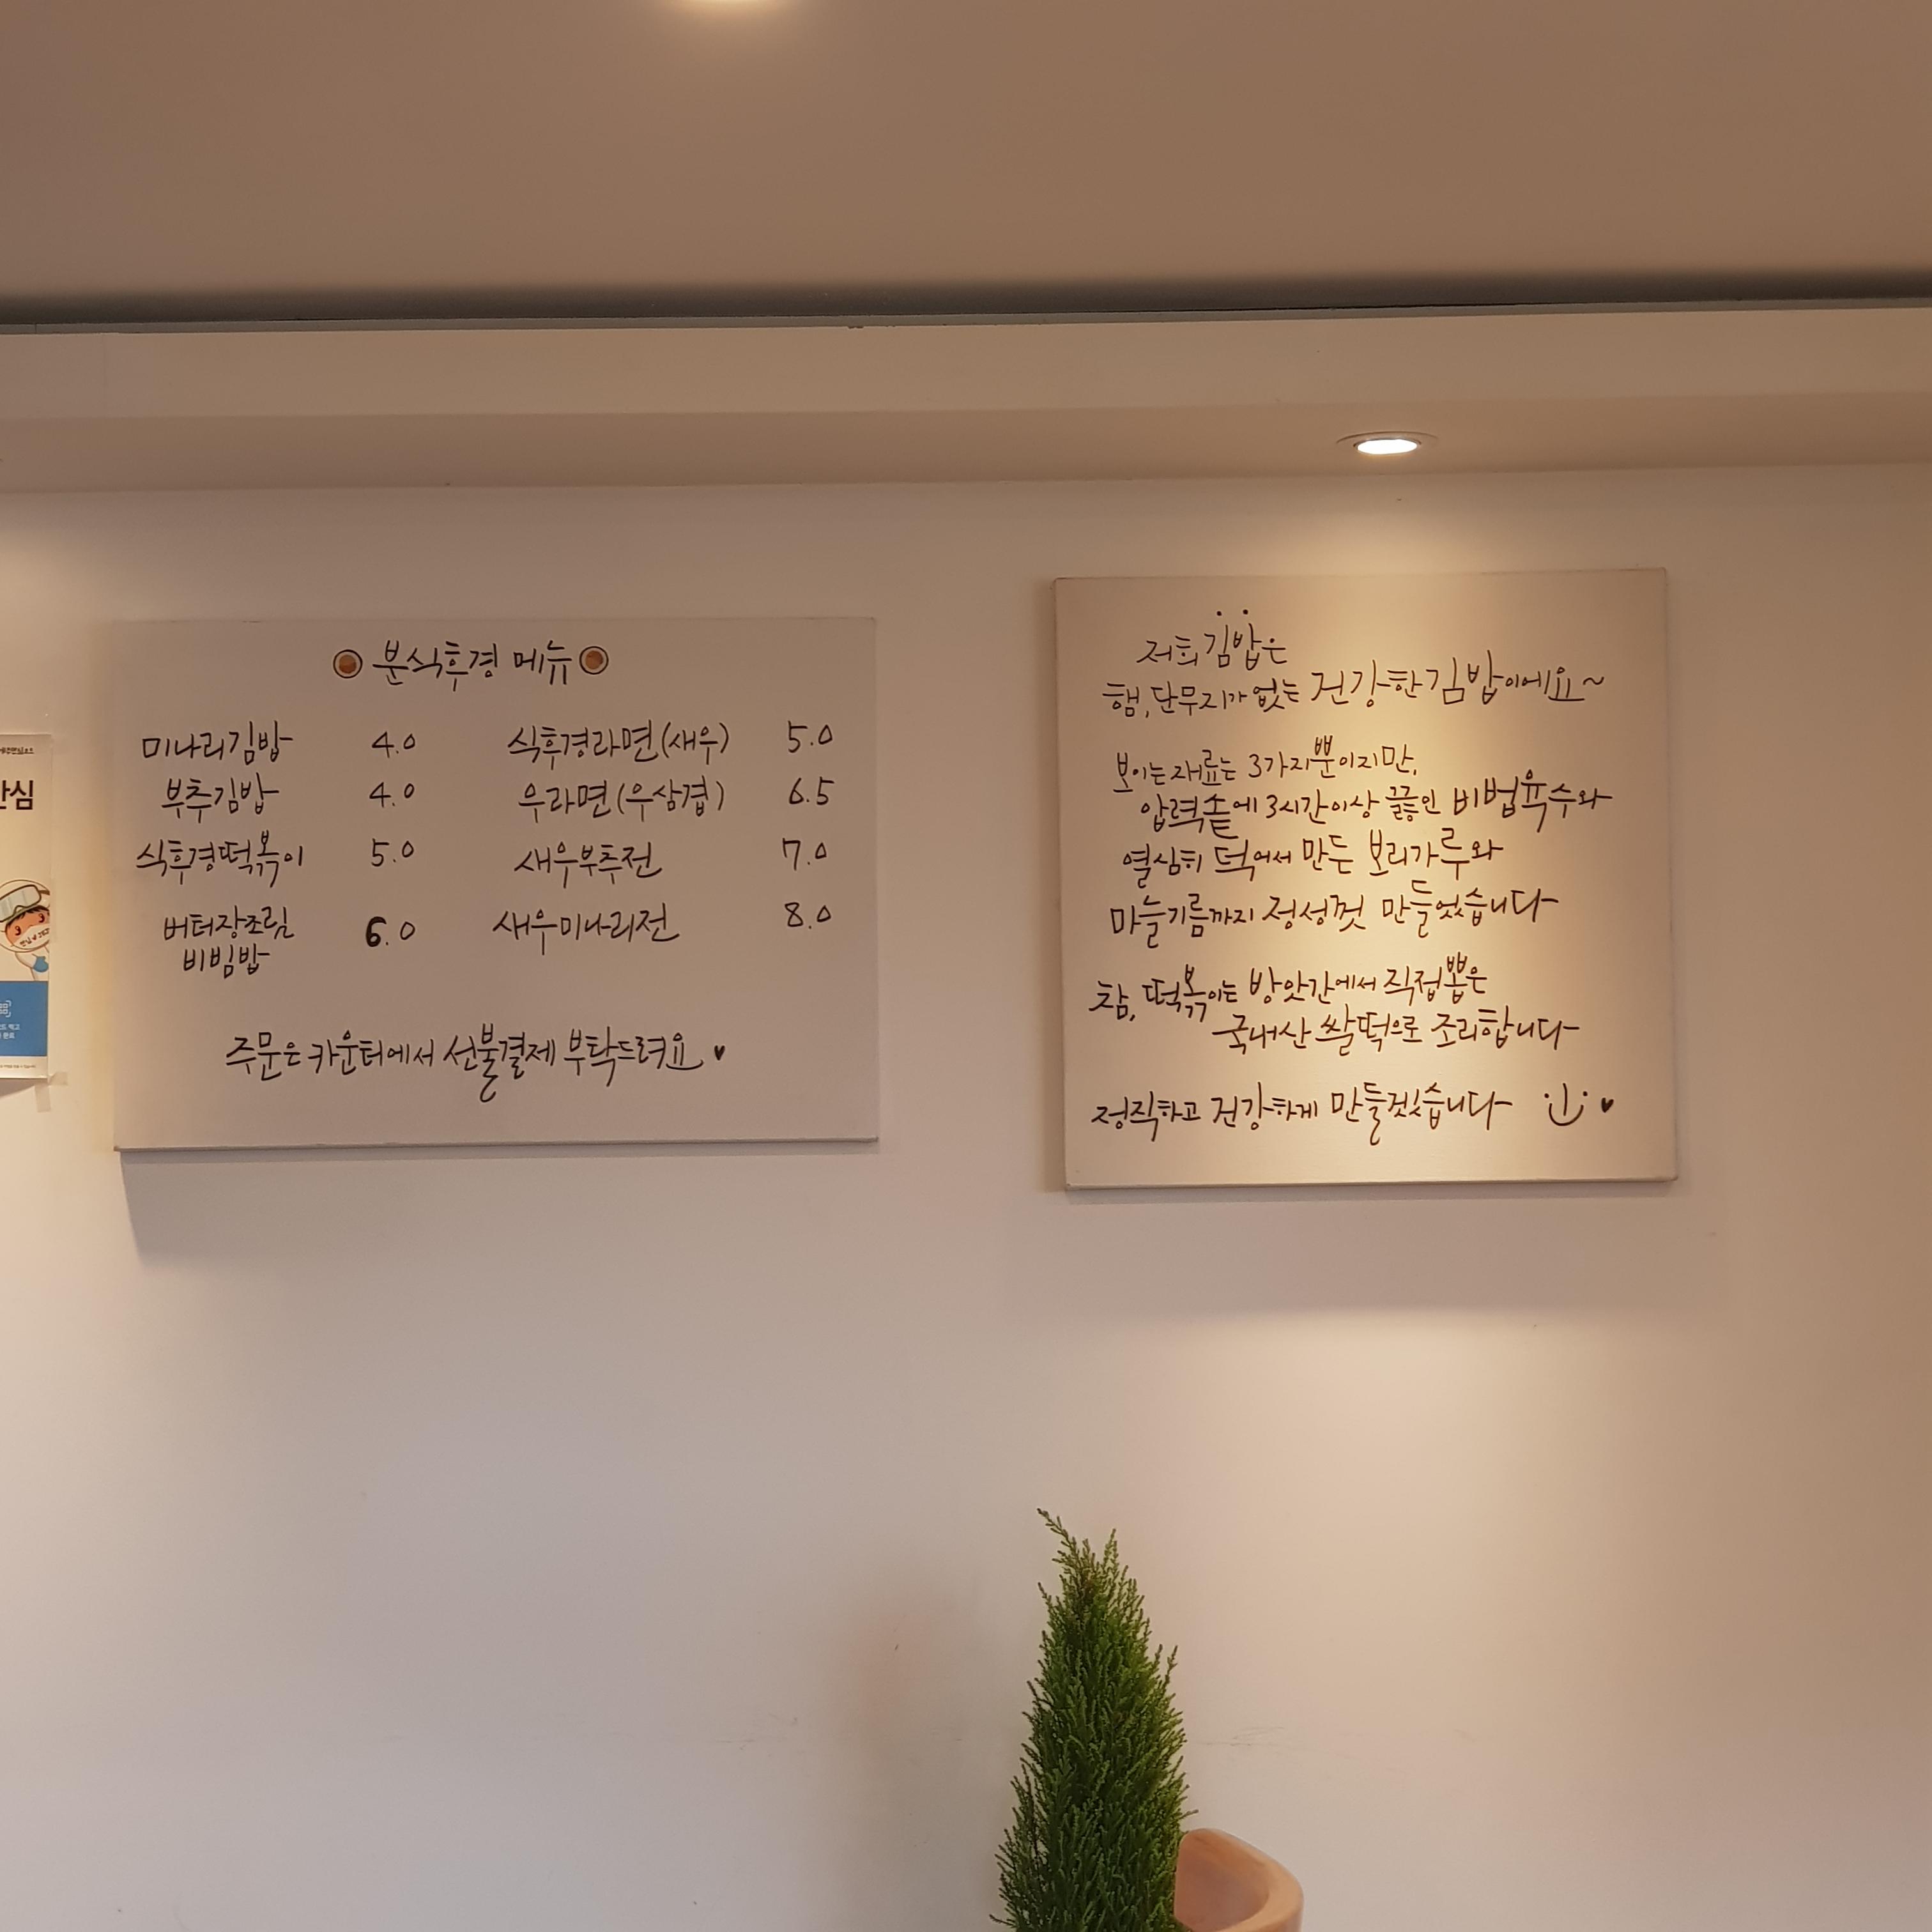 안심
분식후경 메뉴
미나리김밥 4.0
부추김밥 4.0
식후경떡볶이 5.0
버터장조림
비빔밥 6.0
식후경라면(새우) 5.0
우라면(우삼겹) 6.5
새우부추전 7.0
새우미나리전 8.0
주문은 카운터에서 선불결제 부탁드려요 ♥
저희 김밥은
햄, 단무지가 없는 건강한김밥이에요~
보이는 재료는 3가지뿐이지만,
압력솥에 3시간이상 끓인 비법육수와
열심히 덖어서 만든 보리가루와
마늘기름까지 정성껏 만들었습니다
참, 떡볶이는 방앗간에서 직접뽑은
국내산 쌀떡으로 조리합니다
정직하고 건강하게 만들겠습니다 ♥